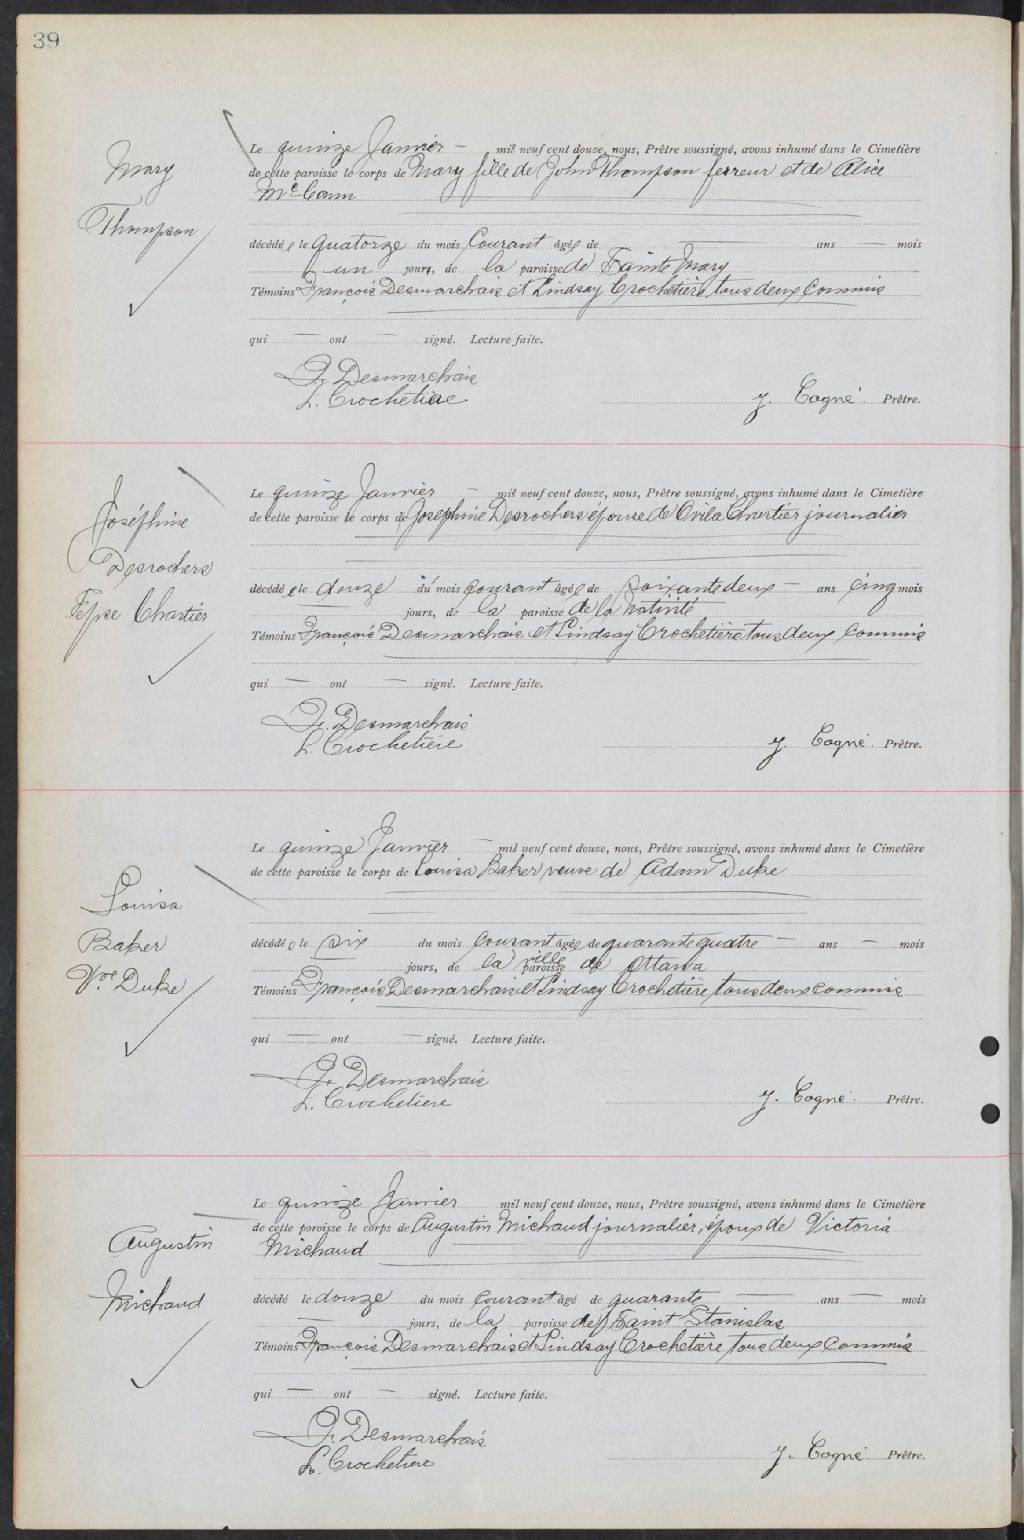 39
Mary
Thompson
Le quinze Janvier — mil neuf cent douze, nous, Prêtre soussigné, avons inhumé dans le Cimetière
de cette paroisse le corps de Mary fille de John Thompson ferreur et de Alice
McCann
décédée le quatorze du mois Courant âgée de — ans — mois
un jours, de la paroisse de Sainte Mary
Témoins François Desmarchais et Lindsay Crochetière tous deux commis
qui — ont — signé. Lecture faite.
Fr. Desmarchais
L. Crochetière
J. Cogné Prêtre.
Joséphine
Desrochers
Fepse Chartier
Le quinze Janvier — mil neuf cent douze, nous, Prêtre soussigné, avons inhumé dans le Cimetière
de cette paroisse le corps de Joséphine Desrochers épouse de Ovila Chartier journalier
décédée le douze du mois courant âgée de soixante deux — ans cinq mois
jours, de la paroisse de la Nativité
Témoins François Desmarchais et Lindsay Crochetière tous deux commis
qui — ont — signé. Lecture faite.
Fr. Desmarchais
L. Crochetière
J. Cogné Prêtre.
Louisa
Baker
Vve Duke
Le quinze Janvier — mil neuf cent douze, nous, Prêtre soussigné, avons inhumé dans le Cimetière
de cette paroisse le corps de Louisa Baker veuve de Adam Duke
décédée le six du mois courant âgée de quarante quatre — ans — mois
jours, de la ville paroisse de Ottawa
Témoins François Desmarchais et Lindsay Crochetière tous deux commis
qui — ont — signé. Lecture faite.
Fr. Desmarchais
L. Crochetiere
J. Cogné Prêtre.
Augustin
Michaud
Le quinze Janvier mil neuf cent douze, nous, Prêtre soussigné, avons inhumé dans le Cimetière
de cette paroisse le corps de Augustin Michaud journalier, époux de Victoria
Michaud
décédé le douze du mois courant âgé de quarante — ans — mois
— jours, de la paroisse de Saint Stanislas
Témoins François Desmarchais et Lindsay Crochetière tous deux commis
qui — ont — signé. Lecture faite.
Fr. Desmarchais
L. Crochetiere
J. Cogné Prêtre.